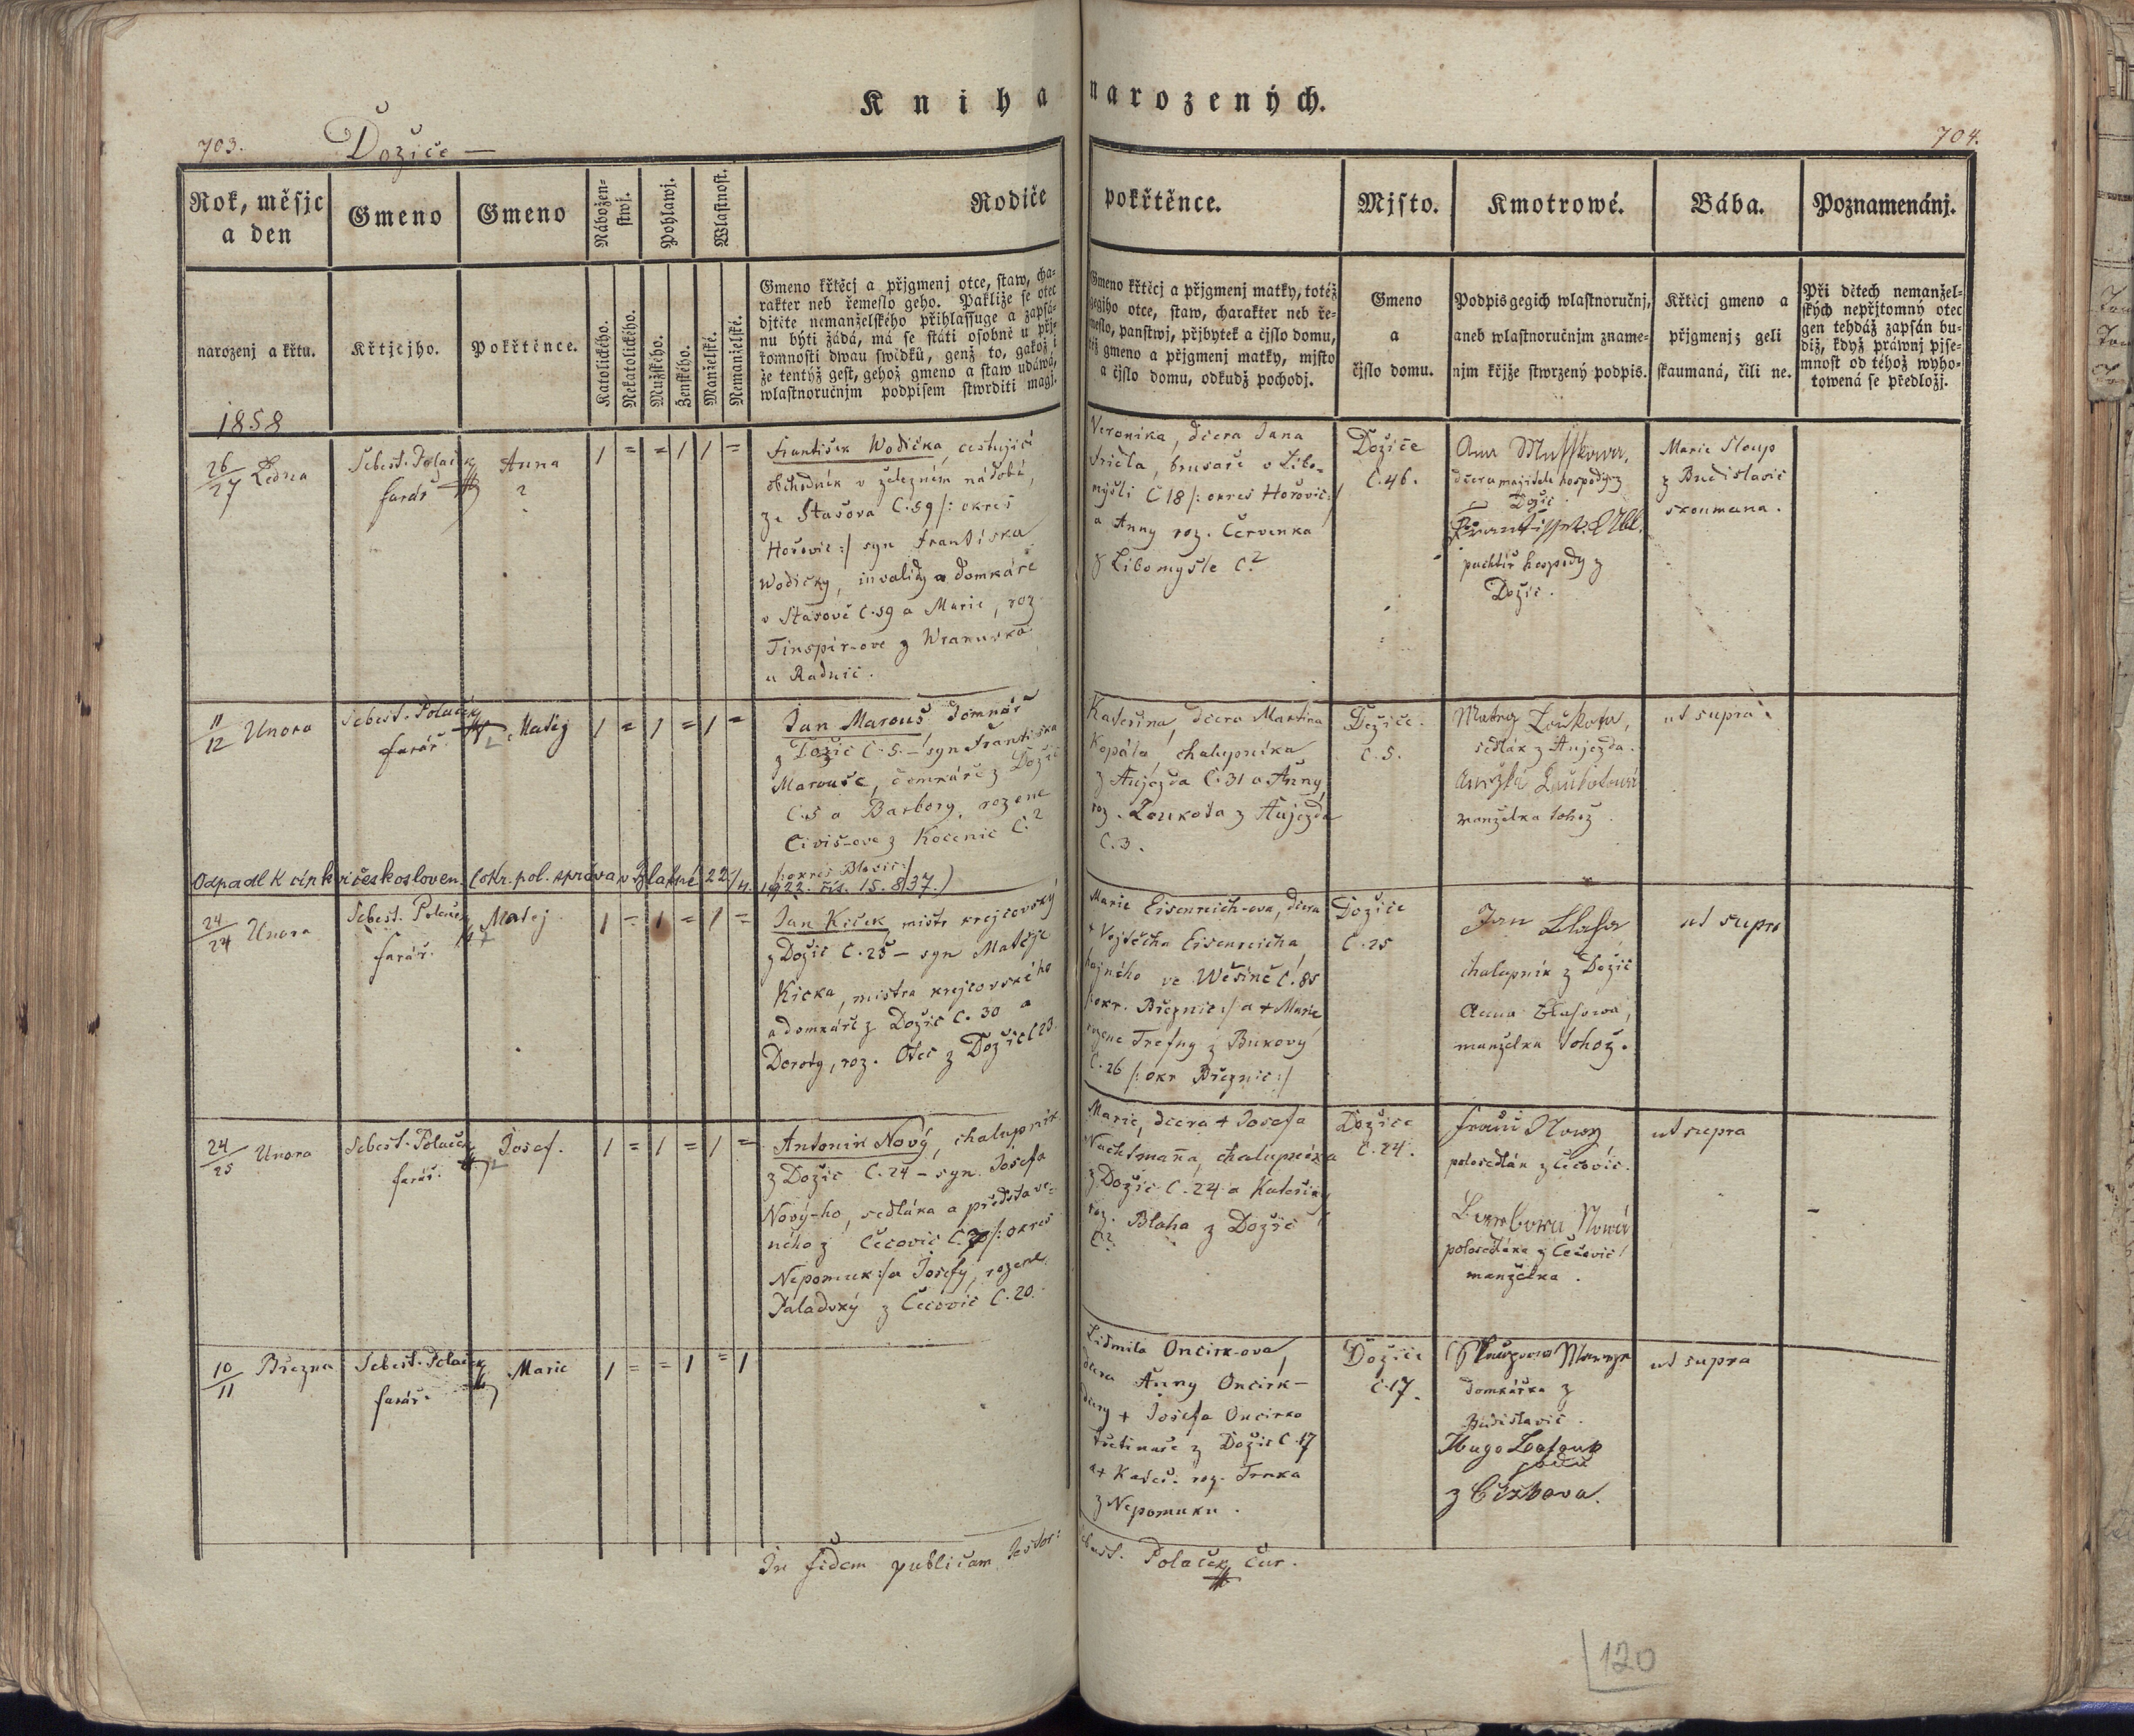 Kniha narozených.
703.
Dožice —
704.
Rok, měsjc
a den
Gmeno
Gmeno
Nábožen-
stwj.
Pohlawj.
Wlastnost.
Rodiče
pokřtěnce.
Mjsto.
Kmotrowé.
Bába.
Poznamenánj.
narozenj a křtu.
Křtjcjho.
Pokřtěnce.
Katolického.
Nekatolického.
Mužského.
Ženského.
Manželské.
Nemanželské.
Gmeno křtěcj a přjgmenj otce, staw, cha-
rakter neb řemeslo geho. Pakliže se otec
djtěte nemanželského přihlassuge a zapsá-
nu býti žádá, má se státi osobně u přj-
tomnosti dwau swědků, genž to, gakož i
že tentýž gest, gehož gmeno a staw udáwá,
wlastnoručnjm podpisem stwrditi magj.
Gmeno křtěcj a přjgmenj matky, totéž
gegjho otce, staw, charakter neb ře-
meslo, panstwj, přjbytek a čjslo domu,
též gmeno a přjgmenj matky, mjsto
a čjslo domu, odkudž pochodj.
Gmeno
a
čjslo domu.
Podpis gegich wlastnoručnj,
aneb wlastnoručnjm zname-
njm křjže stwrzený podpis.
Křtěcj gmeno a
přjgmenj; geli
skaumaná, čili ne.
Při dětech nemanžel-
ských nepřjtomný otec
gen tehdáž zapsán bu-
diž, když práwnj pjse-
mnost od téhož wyho-
towená se předložj.
1858
26/27 Ledna
Sebest. Polaček
farář
Anna
2
1 = = 1 1 =
František Wodička, cestující
obchodník v železném nádobí,
ze Stašova C. 59 /: okres
Hořovic :/ syn Františka
Wodičky, invalidy a domkáře
v Stašově C. 59 a Marie, roz.
z Wranovska
u Radnic.
Veronika, dcera Jana
brusaře v Libo-
myšli C 18 /: okres Hořovic :/
a Anny roz. Červenka
z Libomyšle C. ?
Dožice
C. 46.
Ana
dcera majitele hospody z
Dožic
pachtíř hospody z
Dožic.
Marie Sloup
z Budislavic
skoumana.
11/12 Unora
Sebest. Polaček
farář.
Matěj
1 = 1 = 1 =
Jan Marouš domkář
z Dožic C. 5. – syn Františka
Marouše, domkáře z Dožic
C. 5 a Barbory, rozene
Civiš-ove z Kocenic C. ?
/: okres Blovic :/
Kateřina, dcera Martina
Kopála, chalupníka
z Aujezda C. 31 a Anny,
roz. Loukota z Aujezda
C. 3.
Dožice.
C. 5.
Matej Loukota,
sedlák z Aujezda.
manželka tohož.
ut supra.
Odpadl k církvi českosloven. (okr. pol. správa v Blatné 22/4. 1922. čís. 15.837.)
24/24 Unora
Sebest. Polaček
farář.
Matej
1 = 1 = 1 =
Jan Kicek, mistr krejcovský
z Dožic C. 25 – syn Matěje
Kicka, mistra krejcovského
a domkáře z Dožic C. 30 a
Doroty, roz. Otec z Dožic C 23.
Marie Eisenreich-ova, dcera
+ Vojtěcha Eisenreicha,
hajného ve Wěšíně C. 85
/: okr. Březnic :/ a + Marie
rozene Trefny z Bukovy
C. 26 /: okr Březnic :/
Dožice
C. 25
Jan Blaha
chalupník z Dožic
Anna Blahowa,
manželka tohož.
ut supra
24/25 Unora
Sebest. Polaček
farář.
Josef.
1 = 1 = 1 =
Antonin Nový, chalupník
z Dožic C. 24 – syn Josefa
Nový-ho, sedláka a představe-
ného z Čečovic /: okres
Nepomuk :/ a Josefy, rozene
z Čečovic C. 20.
Marie, dcera + Josefa
Nachtmaňa, chalupníka
z Dožic C. 24 a Kateřiny
roz. Blaha z Dožic
C ?.
Dožice
C. 24.
Nowy
polosedlák z Čečovic.
Barbora Nowá
polosedláka z Čečovic
manželka.
ut supra
10/11 Března
Sebest. Polaček
farář.
Marie
1 = = 1 = 1
Lidmila Oncirk-ova,
dcera Anny Oncirk –
dcery + Josefa Oncirka
z Dožic C. 17
a + Kateř. roz. Trnka
z Nepomuku.
Dožice
C. 17.
domkářka z
Budislavic.
Hugo
z Čížkova.
ut supra
In fidem publicam testor:
Sebast. Polaček Cur.
120